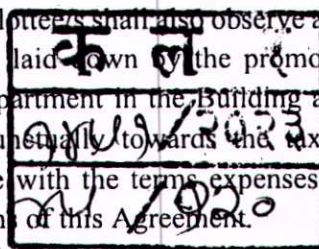 lottee/s shall also observe a
laid down by the promo
partment in the Building a
unctually towards the tax
e with the terms expenses
ns of this Agreement.
क ल
/२०२३
/१२०